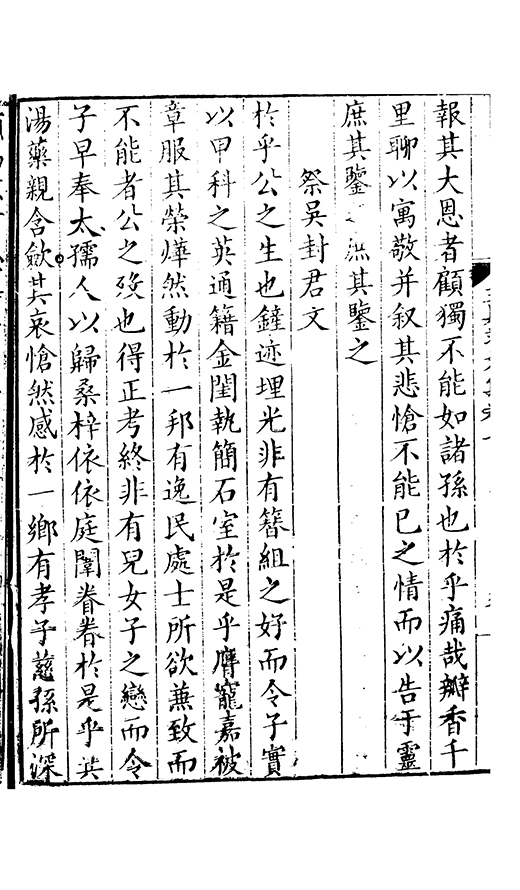 報其大恩者顧獨不能如諸孫也於乎痛哉瓣香千
里聊以寓敬并叙其悲愴不能已之情而以告于靈
庶其鑒之庶其鑒之
祭吳封君文
於乎公之生也鏟迹埋光非有簪組之好而令子實
以甲科之英通籍金閨執簡石室於是乎膺寵嘉被
章服其榮燁然動於一邦有逸民處士所欲兼致而
不能者公之歿也得正考終非有兒女子之戀而令
子早奉太孺人以歸桑梓依依庭闈眷眷於是乎共
湯藥親含斂其哀愴然感於一鄉有孝子慈孫所深